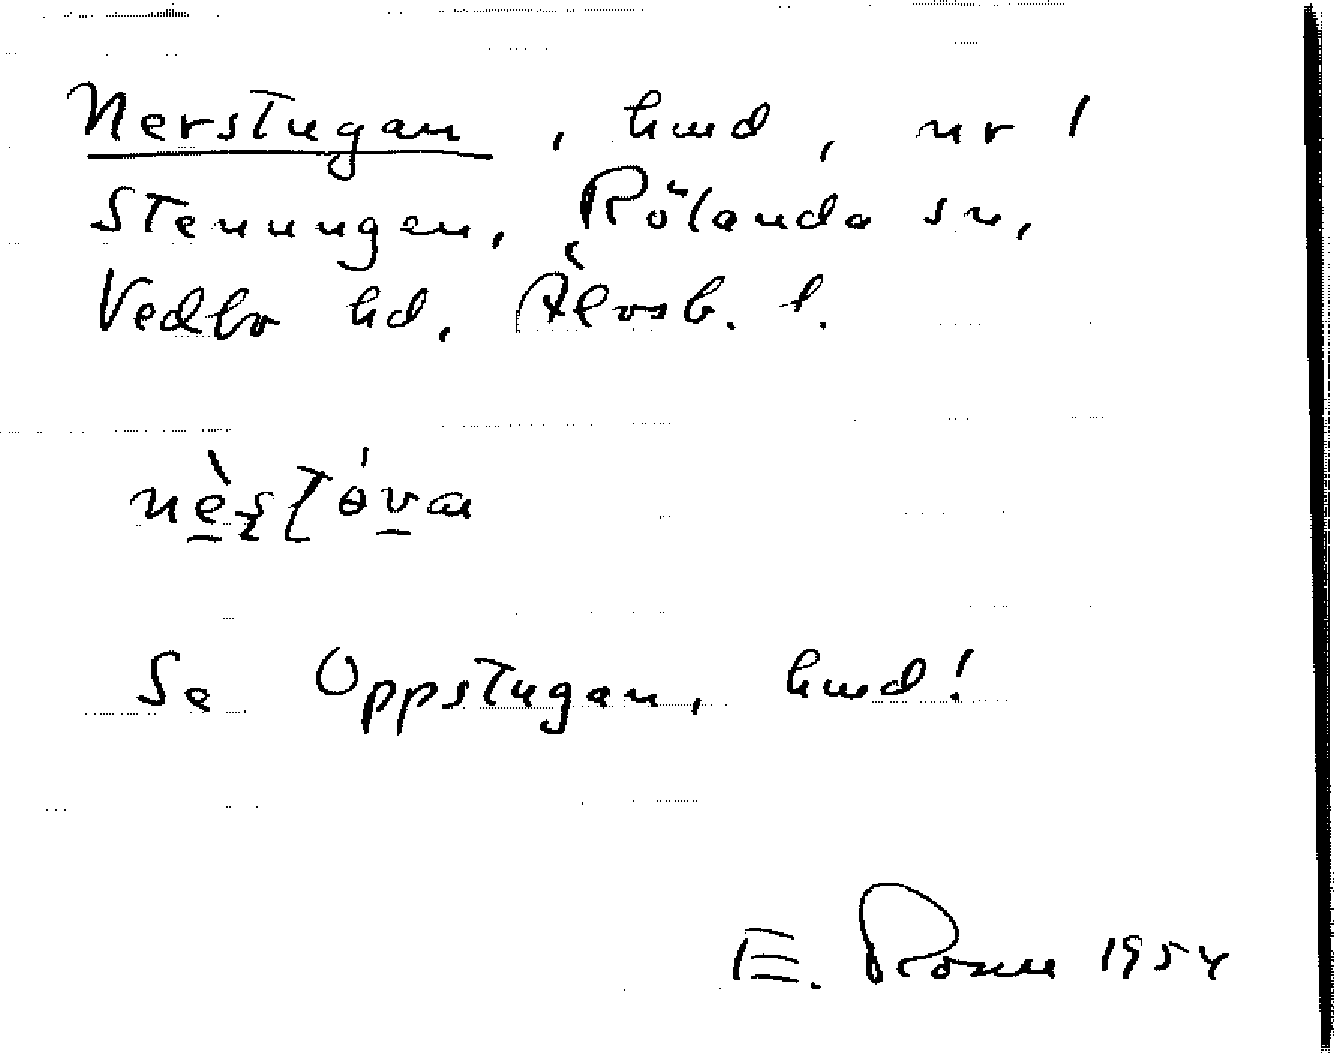 Nerstugan, hmd, nr 1
Stenungen, Rölanda sn,
Vedbo hd, Älvsb. l.
Se Oppstugan, hmd!
E. Rosen 1954